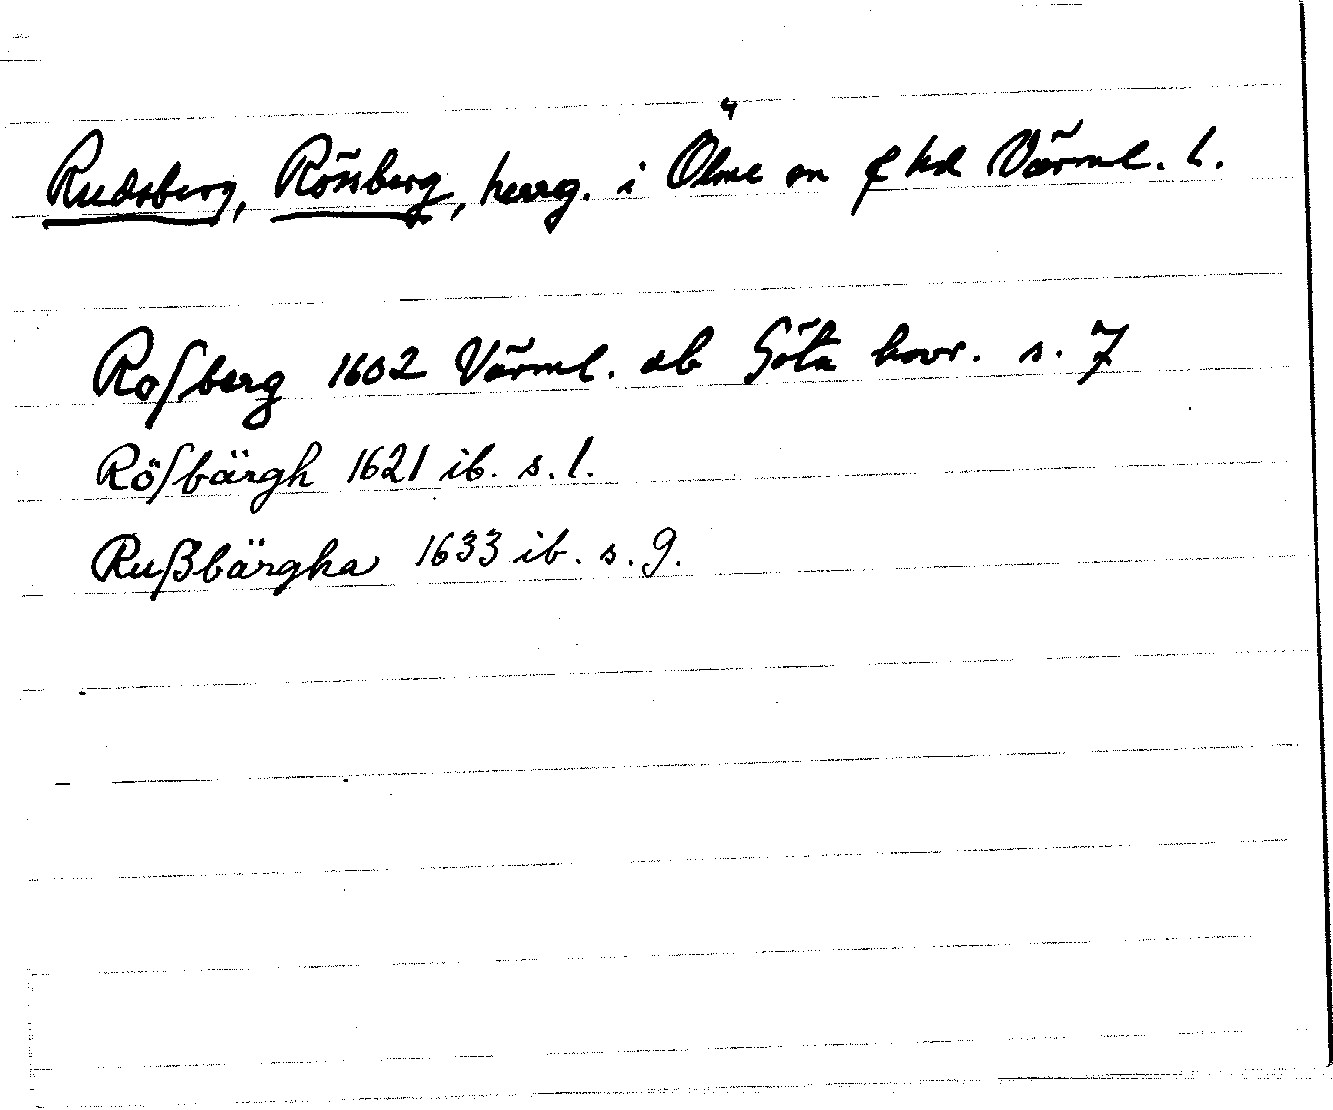 Rudsberg, Rössberg, herrg. i Ölme sn o hd Värml. l.
Roſberg 1602 Värml. ab Göta hovr. s. 7
Röſbärgh 1621 ib. s. 1.
Rußbärgha 1633 ib. s. 9.